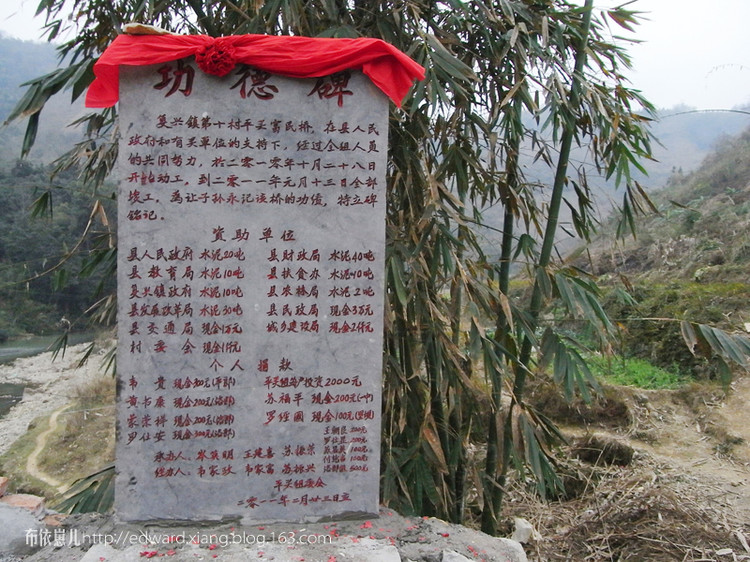 功德碑
复兴镇第十村平买富民桥，在县人民
政府和有关单位的支持下，经过全组人员
的共同努力，於二零一零年十月二十八日
开始动工，到二零一一年元月十三日全部
竣工，为让子孙永记该桥的功绩，特立碑
铭记。
资助单位
县人民政府 水泥20吨 县财政局 水泥40吨
县教育局 水泥10吨 县扶贫办 水泥10吨
复兴镇政府 水泥10吨 县农林局 水泥2吨
县发展改革局 水泥30吨 县民政局 现金3万元
县交通局 现金1万元 城乡建设局 现金2仟元
村委会 现金1仟元
个人捐款
韦贵 平买组 投资2000元
黄书康 现金200元 苏福平 现金200元
蒙荣婷 现金200元 现金100元
罗仕安
承办人：岑英明 王建喜 苏振荣
经办人：韦家欢 韦家富 苏振兴
平买组委会
二零一一年二月廿三日立
布依崽儿http://edward.xiang.blog.163.com